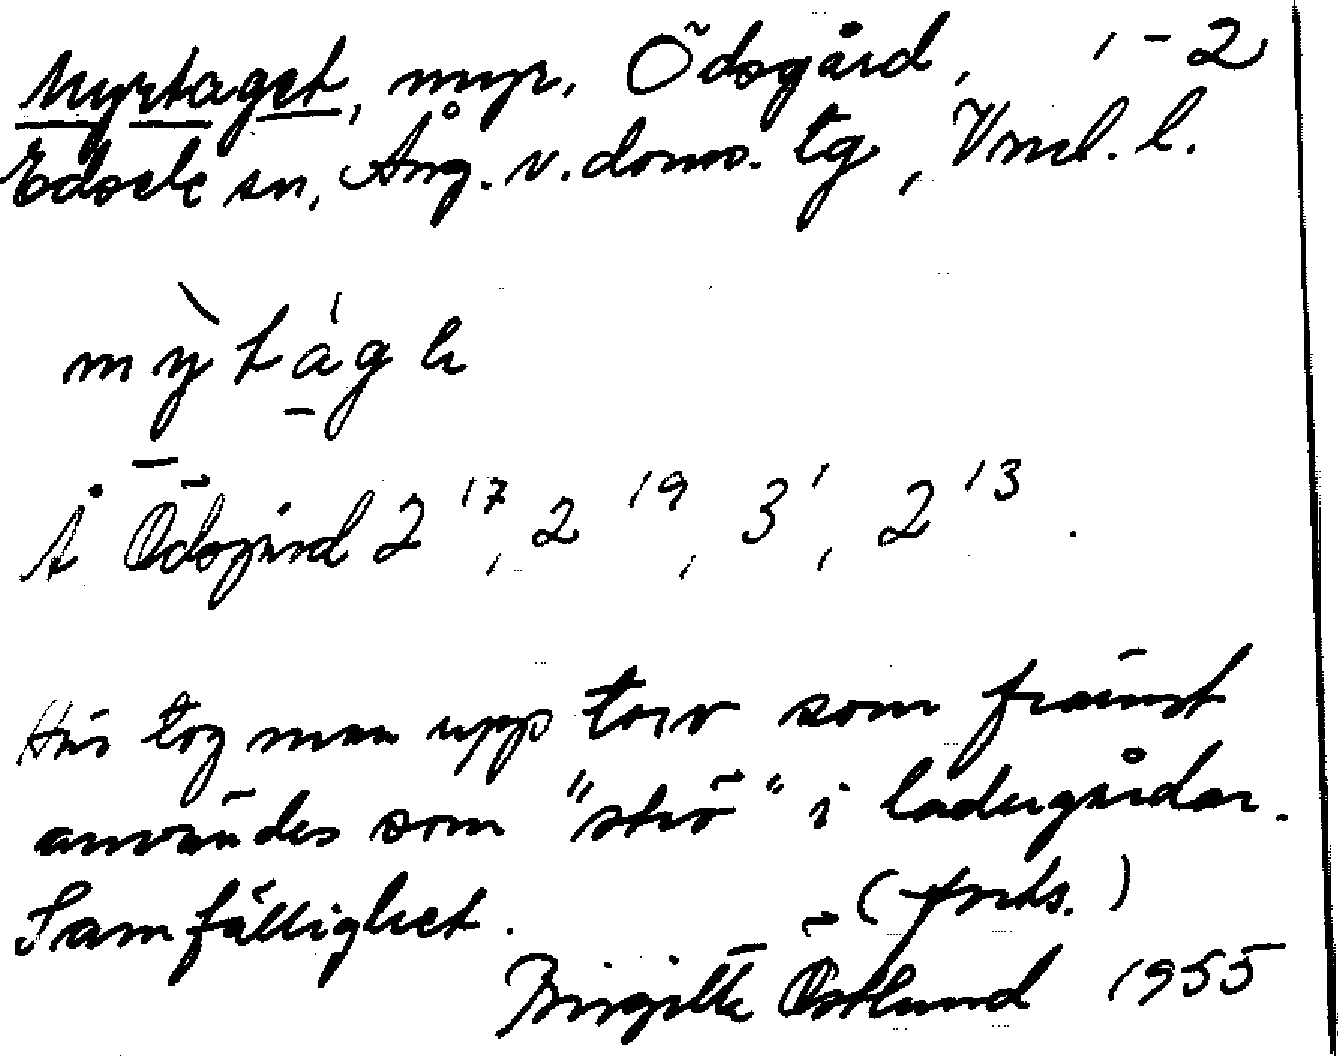 Myrtaget, myr, Ödsgård, 1-2
Edsele sn, Ång. v. doms. tg, Vml. l.
mỳtág
Å Ödsgård 2¹⁷, 2¹⁹, 3¹, 2¹³.
Här tog man upp torv som främst
användes som "strö" i ladugårdar.
Samfällighet. (forts.)
Birgitta Östlund 1955